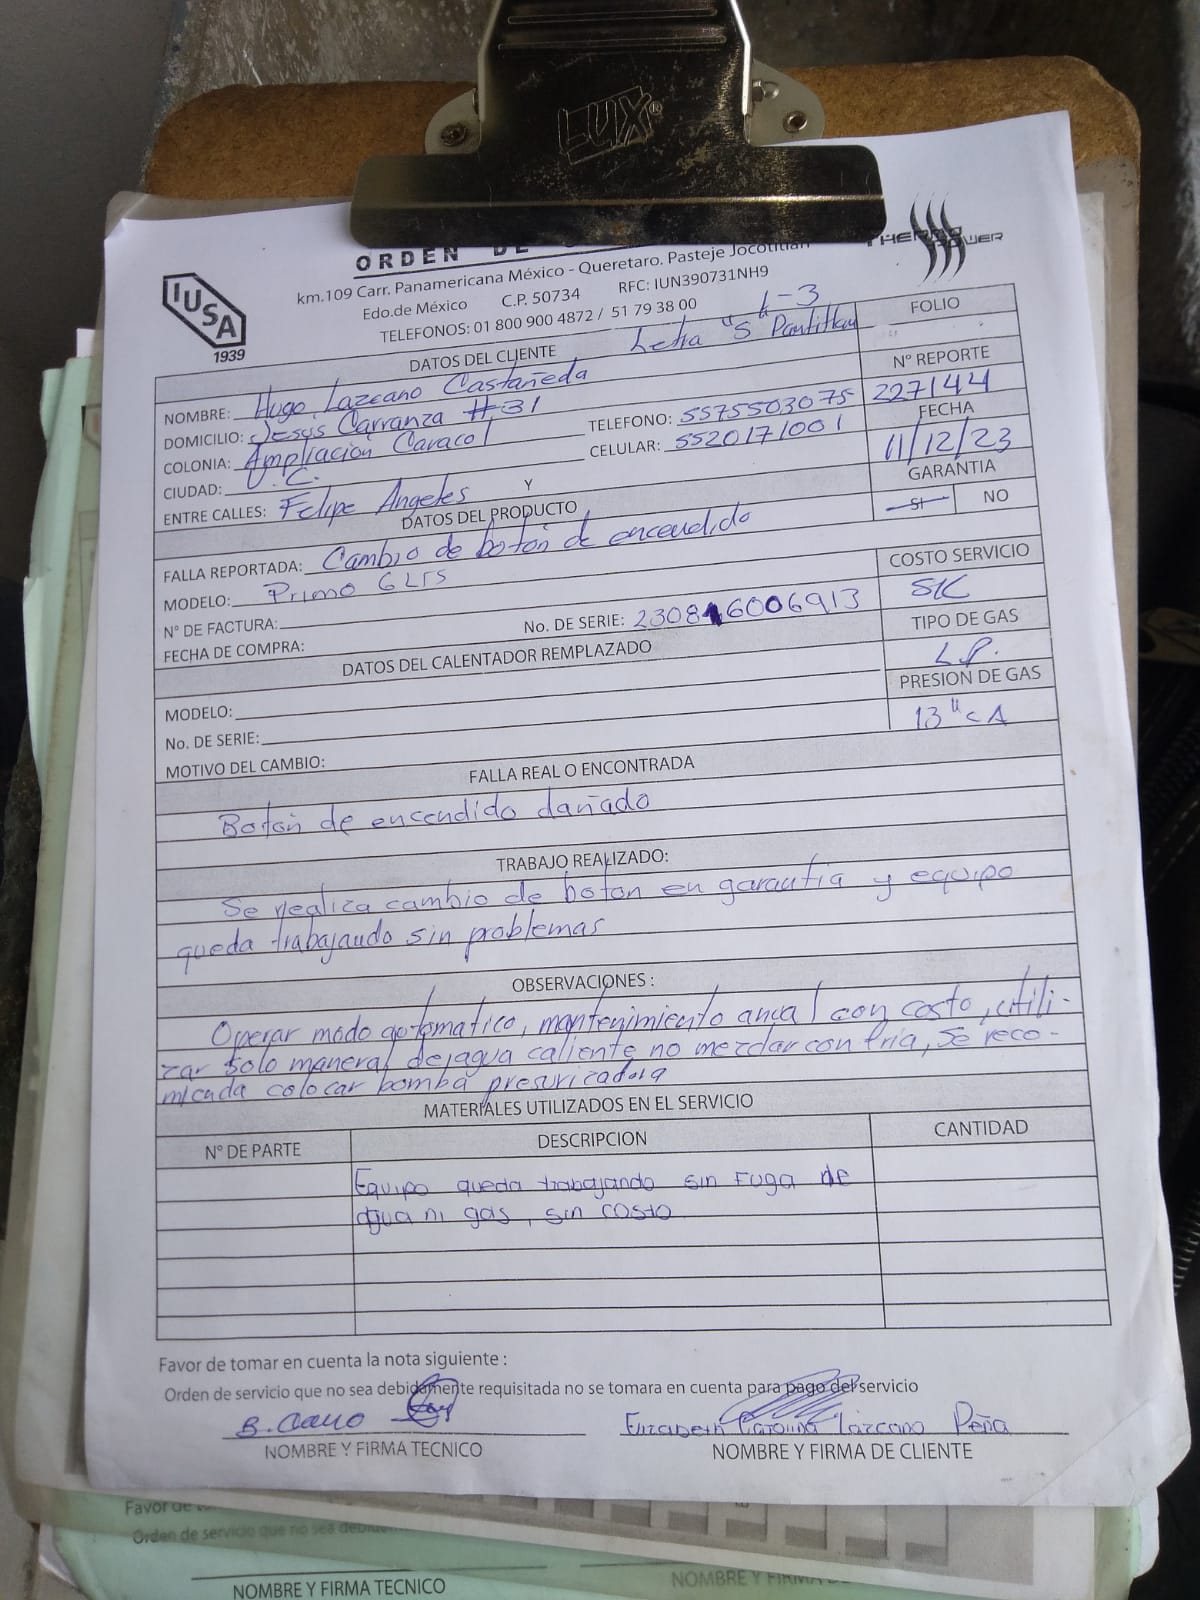 LUX®
ORDEN DE
THERMO POWER
km.109 Carr. Panamericana México - Queretaro. Pasteje Jocotitlan
Edo.de México C.P. 50734 RFC: IUN390731NH9
TELEFONOS: 01 800 900 4872 / 51 79 38 00
IUSA
1939
L-3
DATOS DEL CLIENTE Letra "S" Pantitlan
FOLIO
NOMBRE: Hugo Lazcano Castañeda
Nº REPORTE
227144
DOMICILIO: Jesus Carranza #31
TELEFONO: 5575503075
FECHA
COLONIA: Ampliación Caracol
CELULAR: 5520171001
11/12/23
CIUDAD: V.C.
GARANTIA
ENTRE CALLES: Felipe Angeles Y
SI NO
DATOS DEL PRODUCTO
FALLA REPORTADA: Cambio de botón de encendido
COSTO SERVICIO
MODELO: Primo 6 LTS
S/C
Nº DE FACTURA: No. DE SERIE: 230816006913
TIPO DE GAS
FECHA DE COMPRA:
L.P.
DATOS DEL CALENTADOR REMPLAZADO
PRESION DE GAS
MODELO:
13"cA
No. DE SERIE:
MOTIVO DEL CAMBIO:
FALLA REAL O ENCONTRADA
Botón de encendido dañado
TRABAJO REALIZADO:
Se realiza cambio de boton en garantía y equipo
queda trabajando sin problemas
OBSERVACIONES :
Operar modo automatico, mantenimiento anual con costo, utili-
zar solo maneral de agua caliente no mezclar con fria, se reco-
micada colocar bomba presurizadora
MATERIALES UTILIZADOS EN EL SERVICIO
Nº DE PARTE DESCRIPCION CANTIDAD
Equipo queda trabajando sin Fuga de
agua ni gas, sin costo
Favor de tomar en cuenta la nota siguiente :
Orden de servicio que no sea debidamente requisitada no se tomara en cuenta para pago del servicio
B. Cano Elizabeth Carolina Lazcano Peña
NOMBRE Y FIRMA TECNICO NOMBRE Y FIRMA DE CLIENTE
Favor de
Orden de servicio que no sea
NOMBRE Y FIRMA TECNICO NOMBRE Y FIRMA